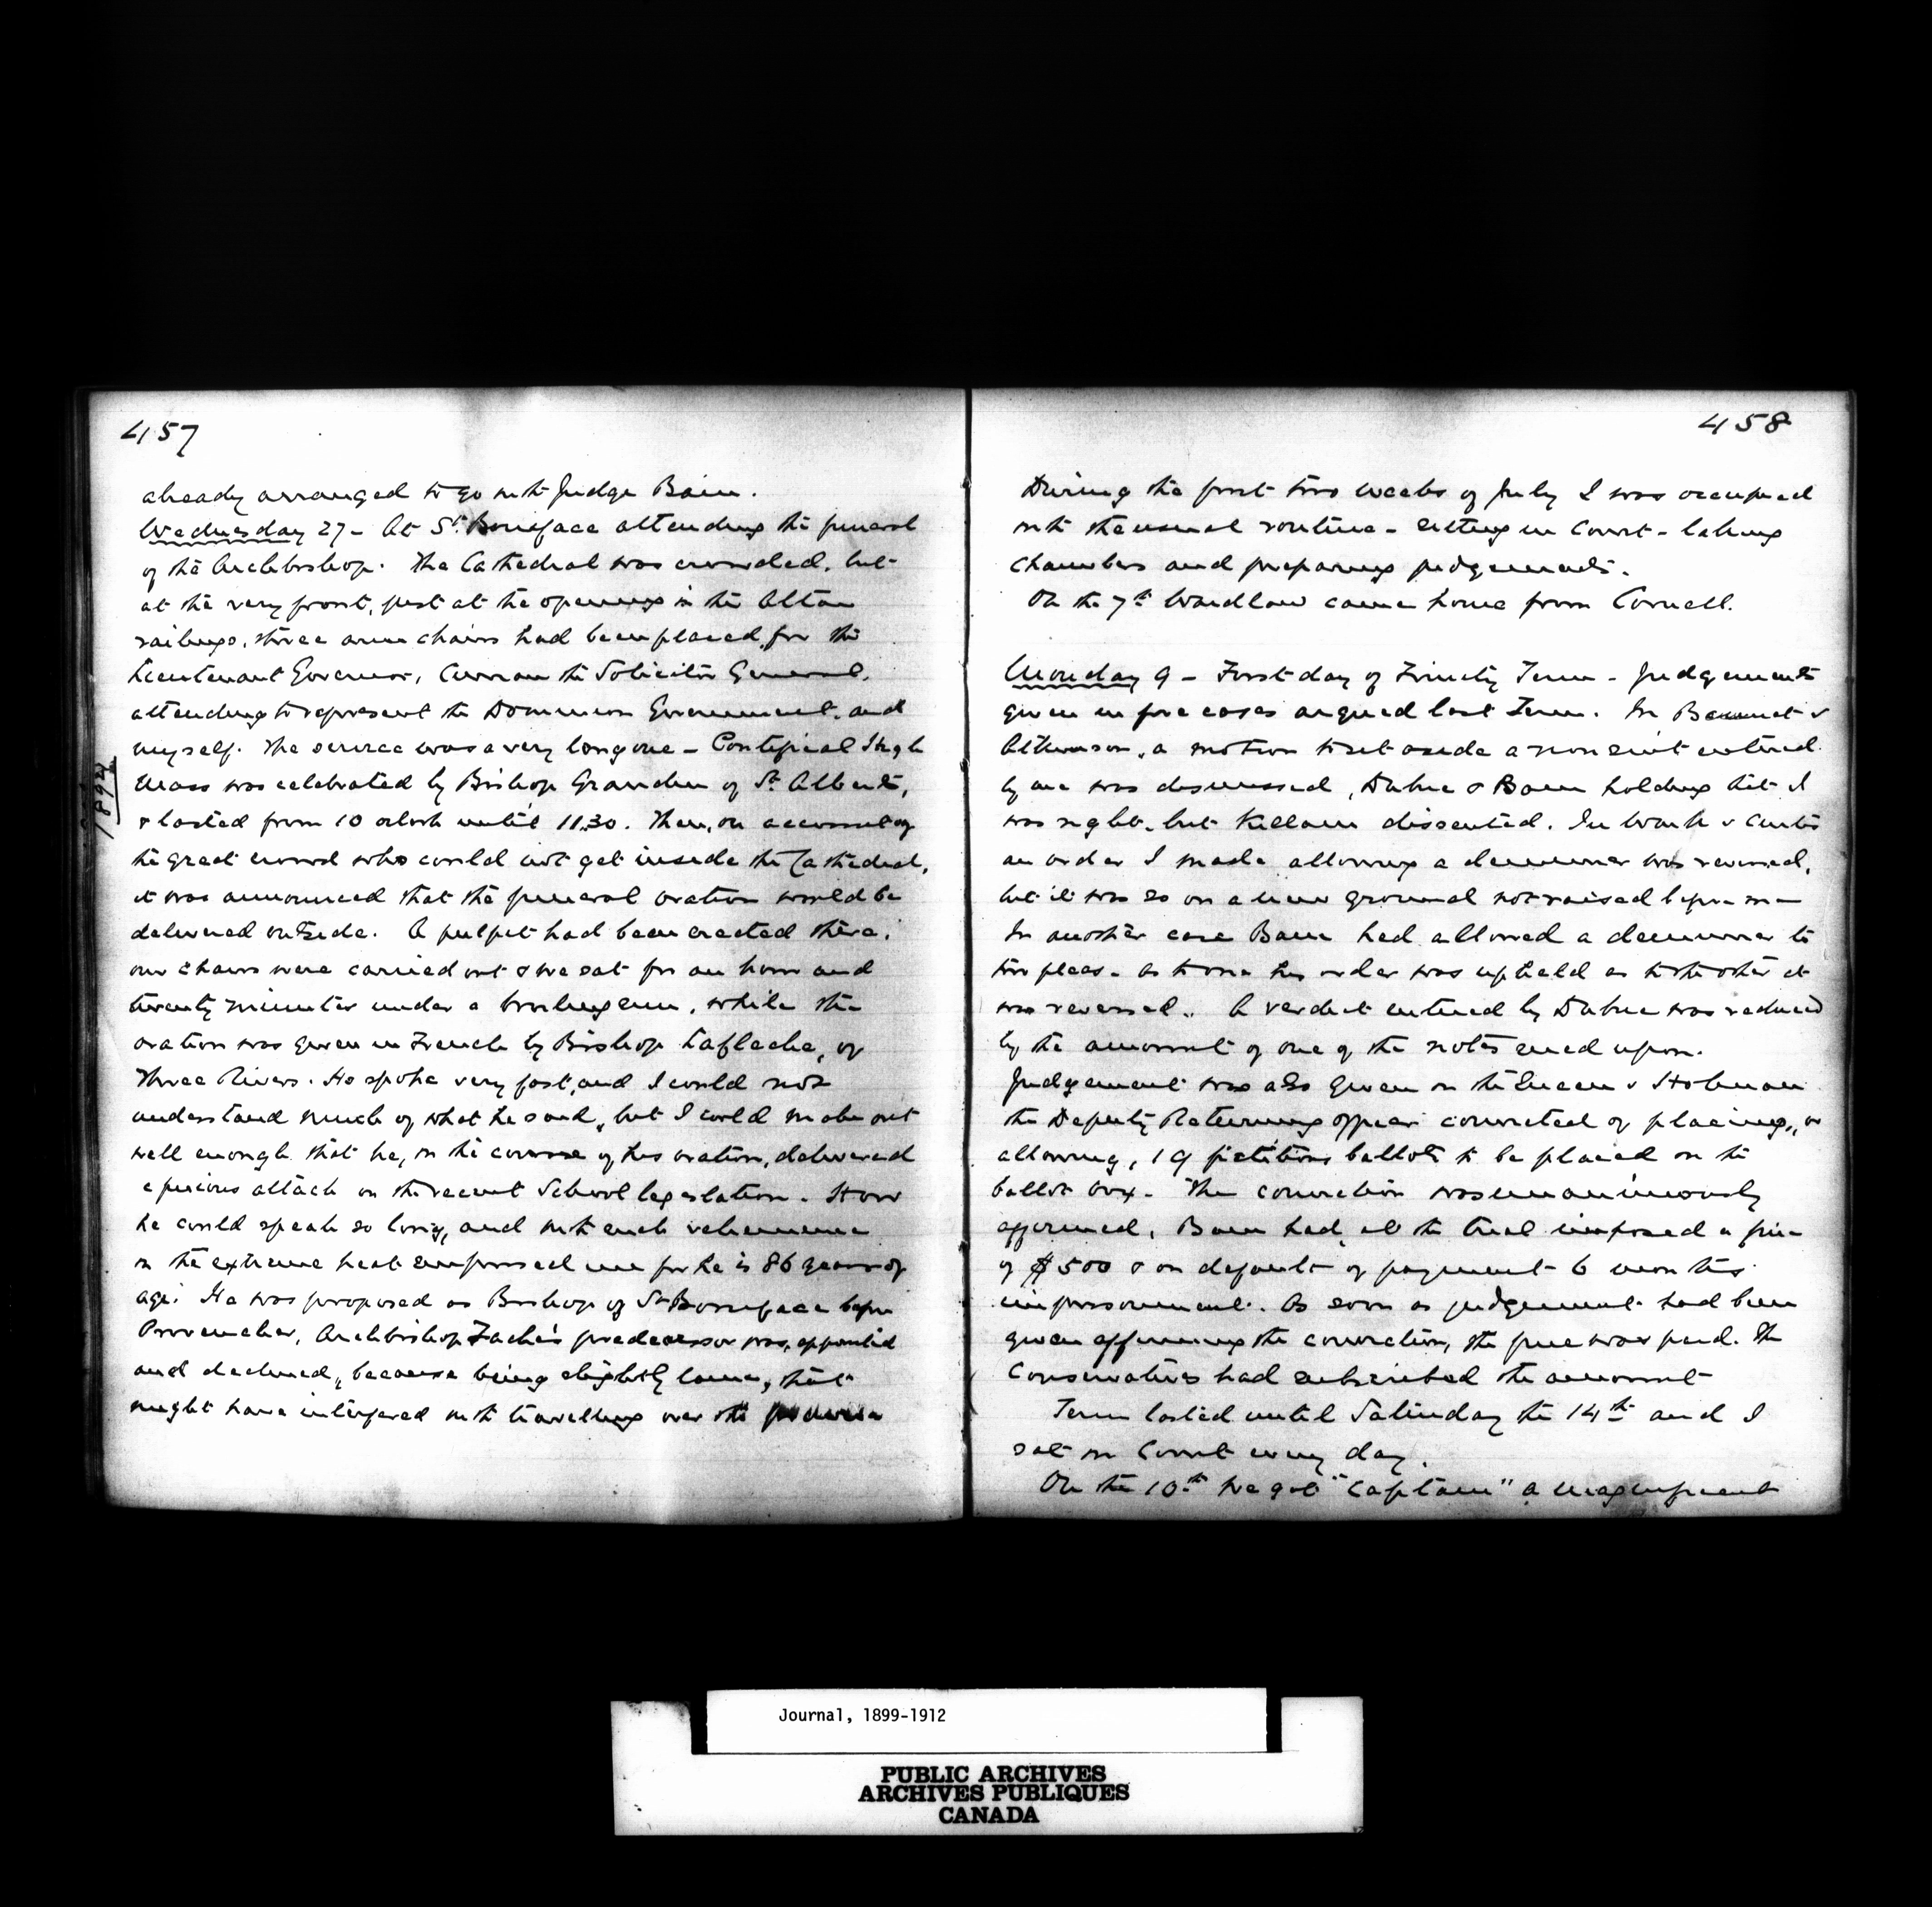 457
already arranged to go with Judge Bain.
Wednesday 27 - At St. Boniface attending the funeral
of the Archbishop. The Cathedral was crowded, but
at the very front, just at the opening in the Altar
railings, three arm chairs had been placed, for the
Lieutenant Governor, Curran the Solicitor General,
attending to represent the Dominion Government, and
myself. The service was a very long one - Pontifical High
Mass was celebrated by Bishop Grandin of St Albert,
& lasted from 10 oclock until 11.30. Then, on account of
the great crowd who could not get inside the Cathedral,
it was announced that the funeral oration would be
delivered outside. A pulpit had been erected there,
our chairs were carried out & we sat for an hour and
twenty minutes under a broiling sun, while the
oration was given in French by Bishop Lafleche, of
Three Rivers. He spoke very fast, and I could not
understand much of what he said, but I could make out
well enough that he, in the course of his oration, delivered
a furious attack on the recent School legislation. How
he could speak so long, and with such vehemence
in the extreme heat surprised me for he is 86 years of
age. He was proposed as Bishop of St Boniface before
Provencher, Archbishop Tache's predecessor was, appointed
and declined, because being slightly lame, that
might have interfered with travelling over the prairie
1894
458
During the first two weeks of July I was occupied
with the usual routine - sitting in Court - taking
Chambers and preparing judgements.
On the 7th Wardlaw came home from Cornell.
Monday 9 - First day of Trinity Term - Judgements
given in five cases argued last Term. In Bennet v
Atkinson, a motion to set aside a non suit entered
by me was dismissed, Dubuc & Bain holding that I
was right, but Killam dissented. In v Curtis
an order I made allowing a demurrer was reversed,
but it was so on a new ground not raised before me
In another case Bain had allowed a demurrer to
two pleas - as to one his order was upheld as to the other it
was reversed. A verdict entered by Dubuc was reduced
by the amount of one of the notes sued upon.
Judgement was also given in the Queen v Holman
the Deputy Returning officer convicted of placing, or
allowing, 19 fictitious ballots to be placed in the
ballot box. The conviction was unanimously
affirmed. Bain had, at the trial imposed a fine
of $500 & on default of payment 6 months
imprisonment. As soon as judgement had been
given affirming the conviction, the fine was paid. The
Conservatives had subscribed the amount
Term lasted until Saturday the 14th and I
sat in Court every day.
On the 10th we got "Captain" a magnificent
Journal, 1899-1912
PUBLIC ARCHIVES
ARCHIVES PUBLIQUES
CANADA